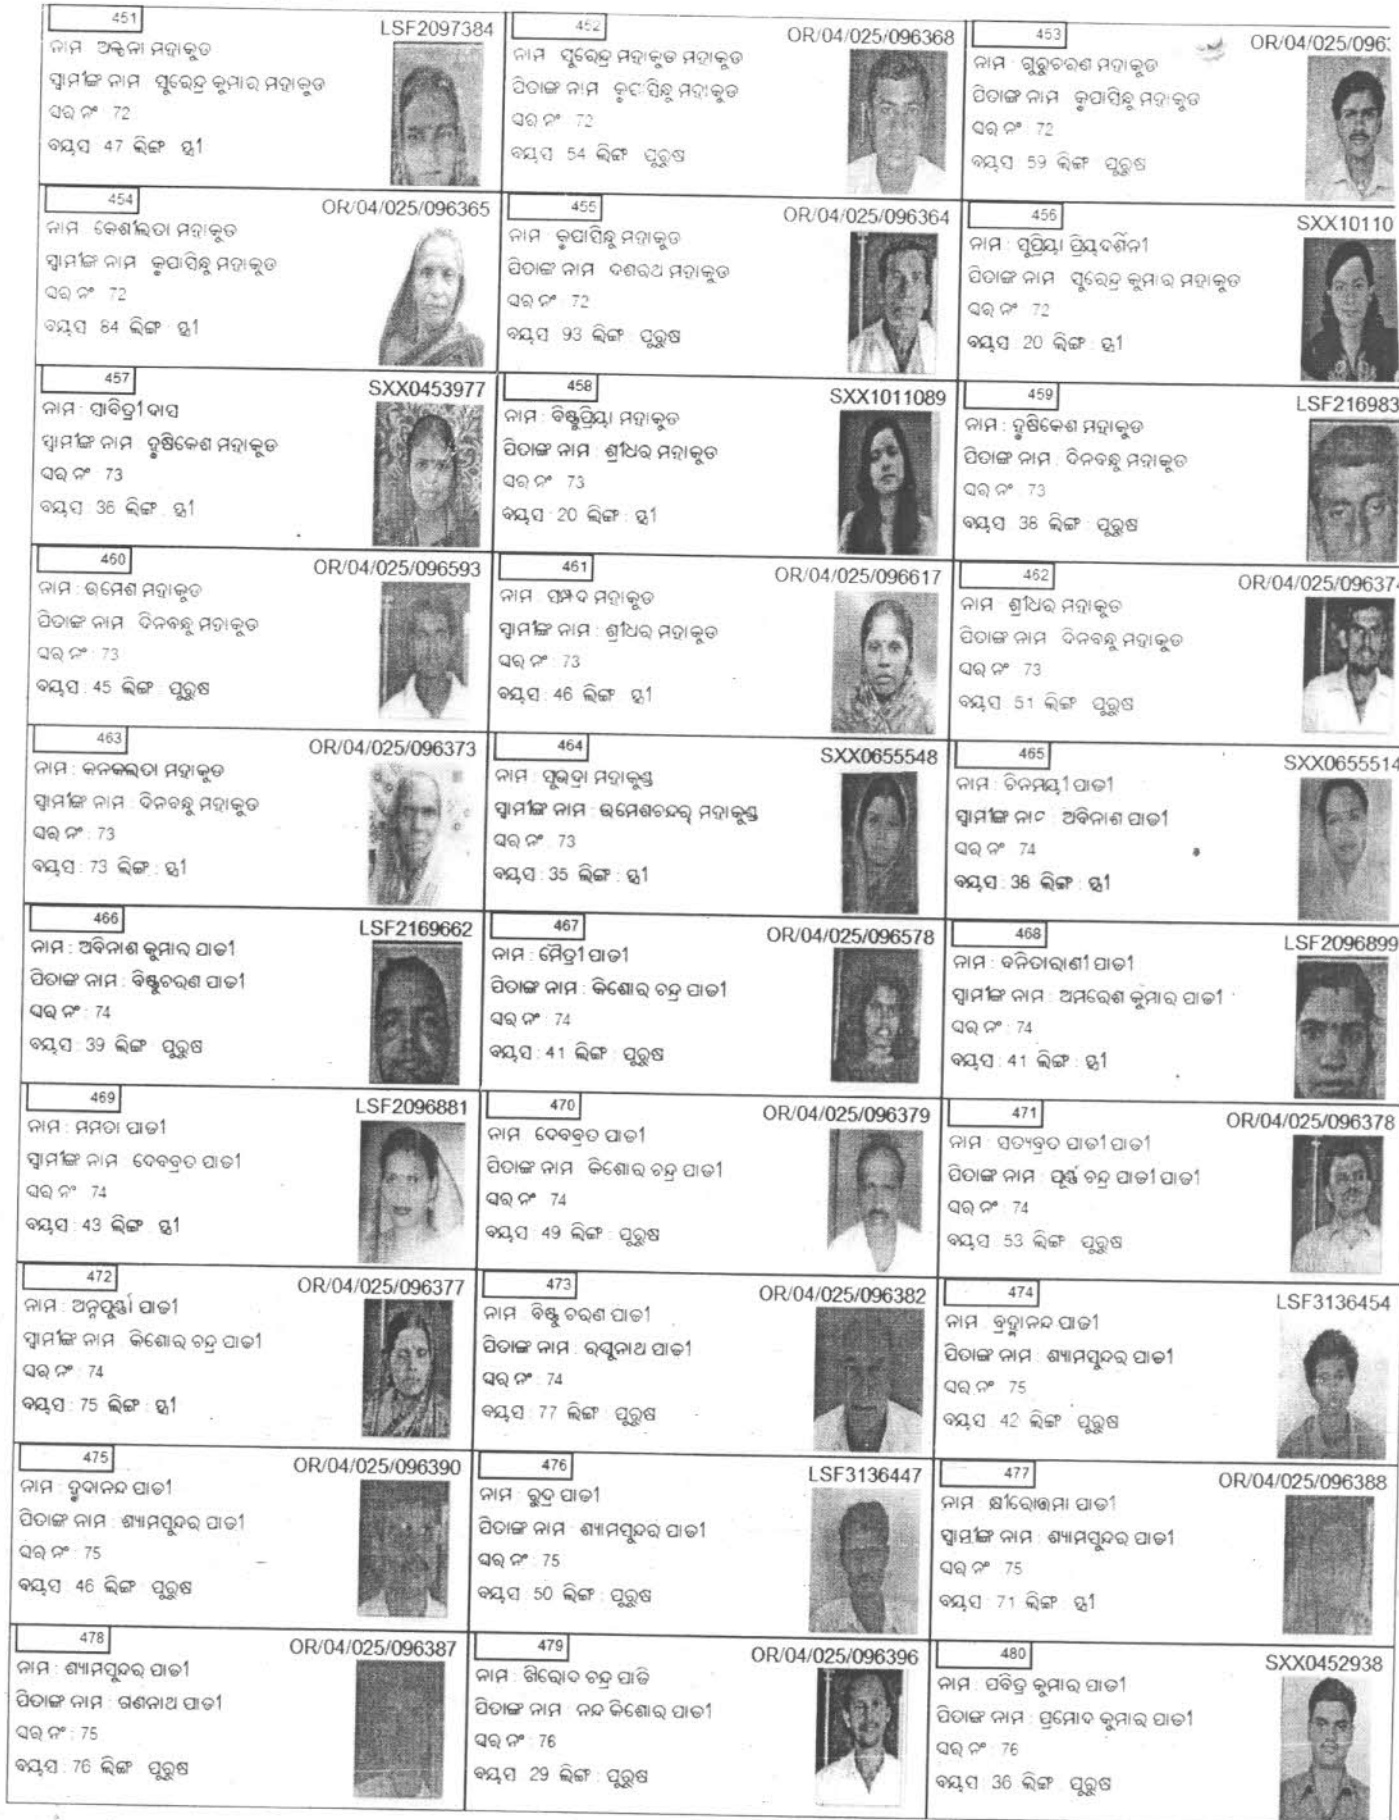 451
LSF2097384
ନାମ ଅଳ୍ପନା ମହାକୁଡ
ସ୍ଵାମୀଙ୍କ ନାମ ସୁରେନ୍ଦ୍ର କୁମାର ମହାକୁଡ
ଘର ନଂ 72
ବୟସ 47 ଲିଙ୍ଗ ସ୍ତ୍ରୀ
452
OR/04/025/096368
ନାମ ସୁରେନ୍ଦ୍ର ମହାକୁଡ ମହାକୁଡ
ପିତାଙ୍କ ନାମ କୃପାସିନ୍ଧୁ ମହାକୁଡ
ଘର ନଂ 72
ବୟସ 54 ଲିଙ୍ଗ ପୁରୁଷ
453
OR/04/025/096
ନାମ : ଗୁରୁଚରଣ ମହାକୁଡ
ପିତାଙ୍କ ନାମ କୃପାସିନ୍ଧୁ ମହାକୁଡ
ଘର ନଂ 72
ବୟସ 59 ଲିଙ୍ଗ ପୁରୁଷ
454
OR/04/025/096365
ନାମ : କେଶୀଲତା ମହାକୁଡ
ସ୍ଵାମୀଙ୍କ ନାମ କୃପାସିନ୍ଧୁ ମହାକୁଡ
ଘର ନଂ 72
ବୟସ 84 ଲିଙ୍ଗ : ସ୍ତ୍ରୀ
455
OR/04/025/096364
ନାମ : କୃପାସିନ୍ଧୁ ମହାକୁଡ
ପିତାଙ୍କ ନାମ ଦଶରଥ ମହାକୁଡ
ଘର ନଂ 72
ବୟସ 93 ଲିଙ୍ଗ : ପୁରୁଷ
456
SXX10110
ନାମ : ସୁପ୍ରିୟା ପ୍ରିୟଦର୍ଶିନୀ
ପିତାଙ୍କ ନାମ ସୁରେନ୍ଦ୍ର କୁମାର ମହାକୁଡ
ଘର ନଂ 72
ବୟସ 20 ଲିଙ୍ଗ : ସ୍ତ୍ରୀ
457
SXX0453977
ନାମ : ସାବିତ୍ରୀ ଦାସ
ସ୍ଵାମୀଙ୍କ ନାମ ହୃଷିକେଶ ମହାକୁଡ
ଘର ନଂ 73
ବୟସ : 36 ଲିଙ୍ଗ : ସ୍ତ୍ରୀ
458
SXX1011089
ନାମ : ବିଷ୍ଣୁପ୍ରିୟା ମହାକୁଡ
ପିତାଙ୍କ ନାମ : ଶ୍ରୀଧର ମହାକୁଡ
ଘର ନଂ 73
ବୟସ : 20 ଲିଙ୍ଗ : ସ୍ତ୍ରୀ
459
LSF216983
ନାମ : ହୃଷିକେଶ ମହାକୁଡ
ପିତାଙ୍କ ନାମ : ଦିନବନ୍ଧୁ ମହାକୁଡ
ଘର ନଂ : 73
ବୟସ 38 ଲିଙ୍ଗ : ପୁରୁଷ
460
OR/04/025/096593
ନାମ : ଉମେଶ ମହାକୁଡ
ପିତାଙ୍କ ନାମ ଦିନବନ୍ଧୁ ମହାକୁଡ
ଘର ନଂ : 73
ବୟସ : 45 ଲିଙ୍ଗ : ପୁରୁଷ
461
OR/04/025/096617
ନାମ : ସମ୍ପଦ ମହାକୁଡ
ସ୍ଵାମୀଙ୍କ ନାମ : ଶ୍ରୀଧର ମହାକୁଡ
ଘର ନଂ : 73
ବୟସ : 46 ଲିଙ୍ଗ ସ୍ତ୍ରୀ
462
OR/04/025/096374
ନାମ : ଶ୍ରୀଧର ମହାକୁଡ
ପିତାଙ୍କ ନାମ ଦିନବନ୍ଧୁ ମହାକୁଡ
ଘର ନଂ 73
ବୟସ : 51 ଲିଙ୍ଗ ପୁରୁଷ
463
OR/04/025/096373
ନାମ : କନକଲତା ମହାକୁଡ
ସ୍ଵାମୀଙ୍କ ନାମ : ଦିନବନ୍ଧୁ ମହାକୁଡ
ଘର ନଂ : 73
ବୟସ : 73 ଲିଙ୍ଗ : ସ୍ତ୍ରୀ
464
SXX0655548
ନାମ : ସୁଭଦ୍ରା ମହାକୁଣ୍ଡ
ସ୍ଵାମୀଙ୍କ ନାମ : ଉମେଶଚନ୍ଦର୍ ମହାକୁଣ୍ଡ
ଘର ନଂ : 73
ବୟସ : 35 ଲିଙ୍ଗ : ସ୍ତ୍ରୀ
465
SXX0655514
ନାମ : ଚିନମୟୀ ପାଢୀ
ସ୍ଵାମୀଙ୍କ ନାମ : ଅବିନାଶ ପାଢୀ
ଘର ନଂ 74
ବୟସ : 38 ଲିଙ୍ଗ : ସ୍ତ୍ରୀ
466
LSF2169662
ନାମ : ଅବିନାଶ କୁମାର ପାଢୀ
ପିତାଙ୍କ ନାମ : ବିଷ୍ଣୁଚରଣ ପାଢୀ
ଘର ନଂ : 74
ବୟସ : 39 ଲିଙ୍ଗ ପୁରୁଷ
467
OR/04/025/096578
ନାମ : ମୈତ୍ରୀ ପାଢୀ
ପିତାଙ୍କ ନାମ : କିଶୋର ଚନ୍ଦ୍ର ପାଢୀ
ଘର ନଂ : 74
ବୟସ : 41 ଲିଙ୍ଗ : ପୁରୁଷ
468
LSF2096899
ନାମ : ବନିତାରାଣୀ ପାଢୀ
ସ୍ଵାମୀଙ୍କ ନାମ : ଅମରେଶ କୁମାର ପାଢୀ
ଘର ନଂ : 74
ବୟସ : 41 ଲିଙ୍ଗ : ସ୍ତ୍ରୀ
469
LSF2096881
ନାମ : ମମତା ପାଢୀ
ସ୍ଵାମୀଙ୍କ ନାମ ଦେବବ୍ରତ ପାଢୀ
ଘର ନଂ 74
ବୟସ : 43 ଲିଙ୍ଗ ସ୍ତ୍ରୀ
470
OR/04/025/096379
ନାମ ଦେବବ୍ରତ ପାଢୀ
ପିତାଙ୍କ ନାମ କିଶୋର ଚନ୍ଦ୍ର ପାଢୀ
ଘର ନଂ 74
ବୟସ : 49 ଲିଙ୍ଗ : ପୁରୁଷ
471
OR/04/025/096378
ନାମ : ସତ୍ୟବ୍ରତ ପାଢୀ ପାଢୀ
ପିତାଙ୍କ ନାମ : ପୂର୍ଣ୍ଣ ଚନ୍ଦ୍ର ପାଢୀ ପାଢୀ
ଘର ନଂ : 74
ବୟସ 53 ଲିଙ୍ଗ ପୁରୁଷ
472
OR/04/025/096377
ନାମ : ଅନ୍ନପୂର୍ଣ୍ଣା ପାଢୀ
ସ୍ଵାମୀଙ୍କ ନାମ କିଶୋର ଚନ୍ଦ୍ର ପାଢୀ
ଘର ନଂ : 74
ବୟସ : 75 ଲିଙ୍ଗ : ସ୍ତ୍ରୀ
473
OR/04/025/096382
ନାମ : ବିଷ୍ଣୁ ଚରଣ ପାଢୀ
ପିତାଙ୍କ ନାମ : ରଘୁନାଥ ପାଢୀ
ଘର ନଂ : 74
ବୟସ : 77 ଲିଙ୍ଗ : ପୁରୁଷ
474
LSF3136454
ନାମ : ବ୍ରହ୍ମାନନ୍ଦ ପାଢୀ
ପିତାଙ୍କ ନାମ : ଶ୍ୟାମସୁନ୍ଦର ପାଢୀ
ଘର ନଂ 75
ବୟସ : 42 ଲିଙ୍ଗ ପୁରୁଷ
475
OR/04/025/096390
ନାମ : ହୃଦାନନ୍ଦ ପାଢୀ
ପିତାଙ୍କ ନାମ : ଶ୍ୟାମସୁନ୍ଦର ପାଢୀ
ଘର ନଂ : 75
ବୟସ : 46 ଲିଙ୍ଗ ପୁରୁଷ
476
LSF3136447
ନାମ : ରୁଦ୍ର ପାଢୀ
ପିତାଙ୍କ ନାମ ଶ୍ୟାମସୁନ୍ଦର ପାଢୀ
ଘର ନଂ : 75
ବୟସ : 50 ଲିଙ୍ଗ : ପୁରୁଷ
477
OR/04/025/096388
ନାମ : କ୍ଷୀରୋତ୍ତମା ପାଢୀ
ସ୍ଵାମୀଙ୍କ ନାମ : ଶ୍ୟାମସୁନ୍ଦର ପାଢୀ
ଘର ନଂ : 75
ବୟସ : 71 ଲିଙ୍ଗ ସ୍ତ୍ରୀ
478
OR/04/025/096387
ନାମ : ଶ୍ୟାମସୁନ୍ଦର ପାଢୀ
ପିତାଙ୍କ ନାମ : ଗଣନାଥ ପାଢୀ
ଘର ନଂ : 75
ବୟସ : 76 ଲିଙ୍ଗ ପୁରୁଷ
479
OR/04/025/096396
ନାମ : ଖିରୋଦ ଚନ୍ଦ୍ର ପାଢି
ପିତାଙ୍କ ନାମ : ନନ୍ଦ କିଶୋର ପାଢୀ
ଘର ନଂ : 76
ବୟସ 29 ଲିଙ୍ଗ : ପୁରୁଷ
480
SXX0452938
ନାମ : ପବିତ୍ର କୁମାର ପାଢୀ
ପିତାଙ୍କ ନାମ : ପ୍ରମୋଦ କୁମାର ପାଢୀ
ଘର ନଂ : 76
ବୟସ : 36 ଲିଙ୍ଗ ପୁରୁଷ